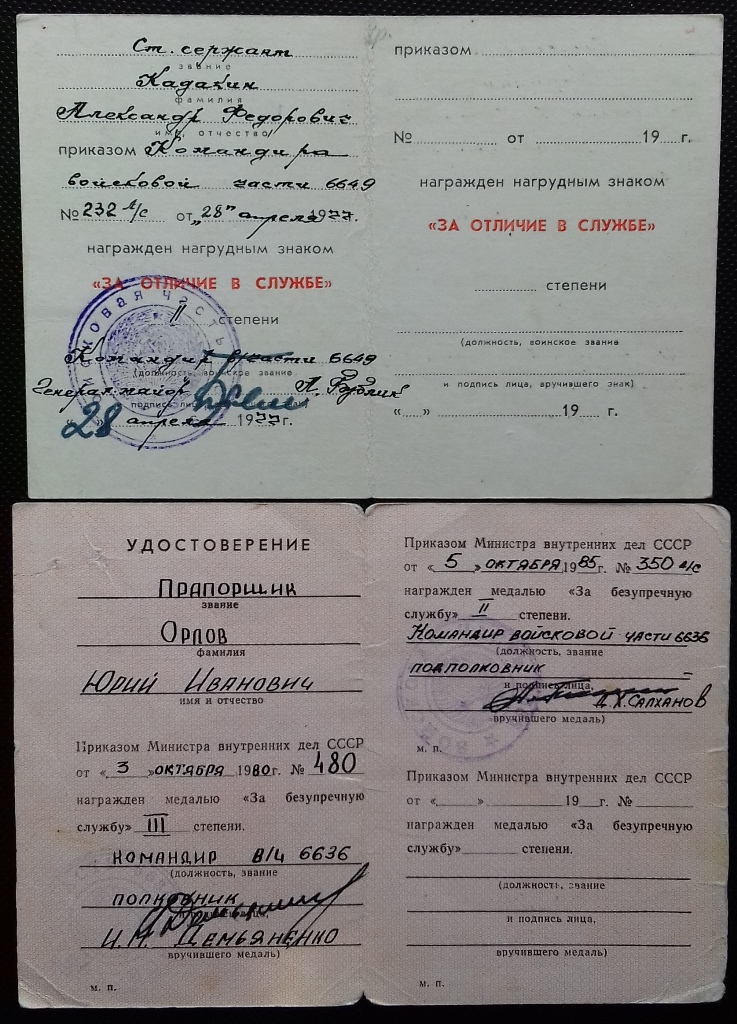 Ст. сержант
звание
Кадакин
фамилия
Александр Федорович
имя, отчество
приказом Командира
войсковой части 6649
№ 232 л/с от „28" апреля 1977г.
награжден нагрудным знаком
«ЗА ОТЛИЧИЕ В СЛУЖБЕ»
II степени
Командир в/части 6649
(должность, воинское звание
Генерал-майор
подпись лица
28 апреля 1977г.
войсковая часть
приказом
№ от 19 г.
награжден нагрудным знаком
«ЗА ОТЛИЧИЕ В СЛУЖБЕ»
степени
(должность, воинское звание
и подпись лица, вручившего знак)
« » 19 г.
УДОСТОВЕРЕНИЕ
Прапорщик
звание
Орлов
фамилия
Юрий Иванович
имя и отчество
Приказом Министра внутренних дел СССР
от « 3 » октября 1980г. № 480
награжден медалью «За безупречную
службу» III степени.
командир в/ч 6636
(должность, звание
полковник
И.М. Демьяненко
вручившего медаль)
м. п.
Приказом Министра внутренних дел СССР
от « 5 » октября 1985г. № 350 л/с
награжден медалью «За безупречную
службу» II степени.
Командир войсковой части 6636
(должность, звание
подполковник
и подпись лица,
Д.Х.Салханов
вручившего медаль)
м. п.
Приказом Министра внутренних дел СССР
от « » 19 г. №
награжден медалью «За безупречную
службу» степени.
(должность, звание
и подпись лица,
вручившего медаль)
м. п.